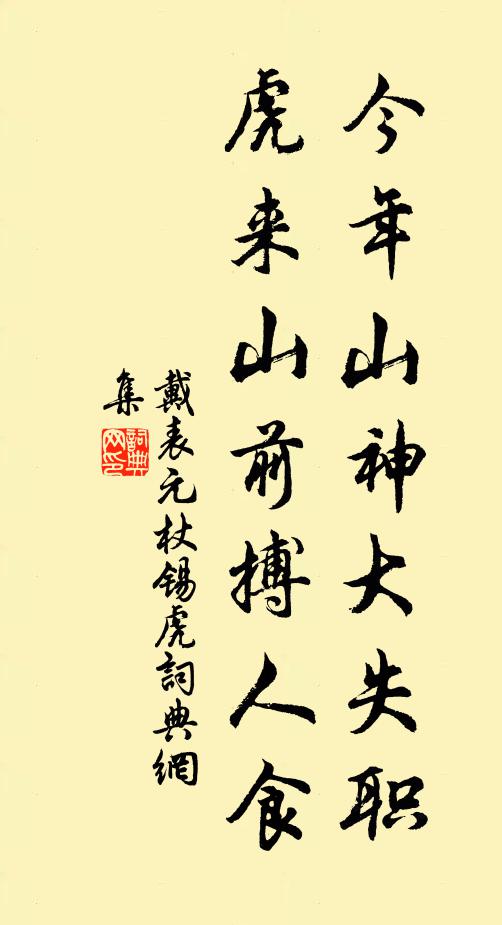 今年山神大失职
虎来山前搏人食
戴表元杖锡虎詞典網
集
詞典
网印